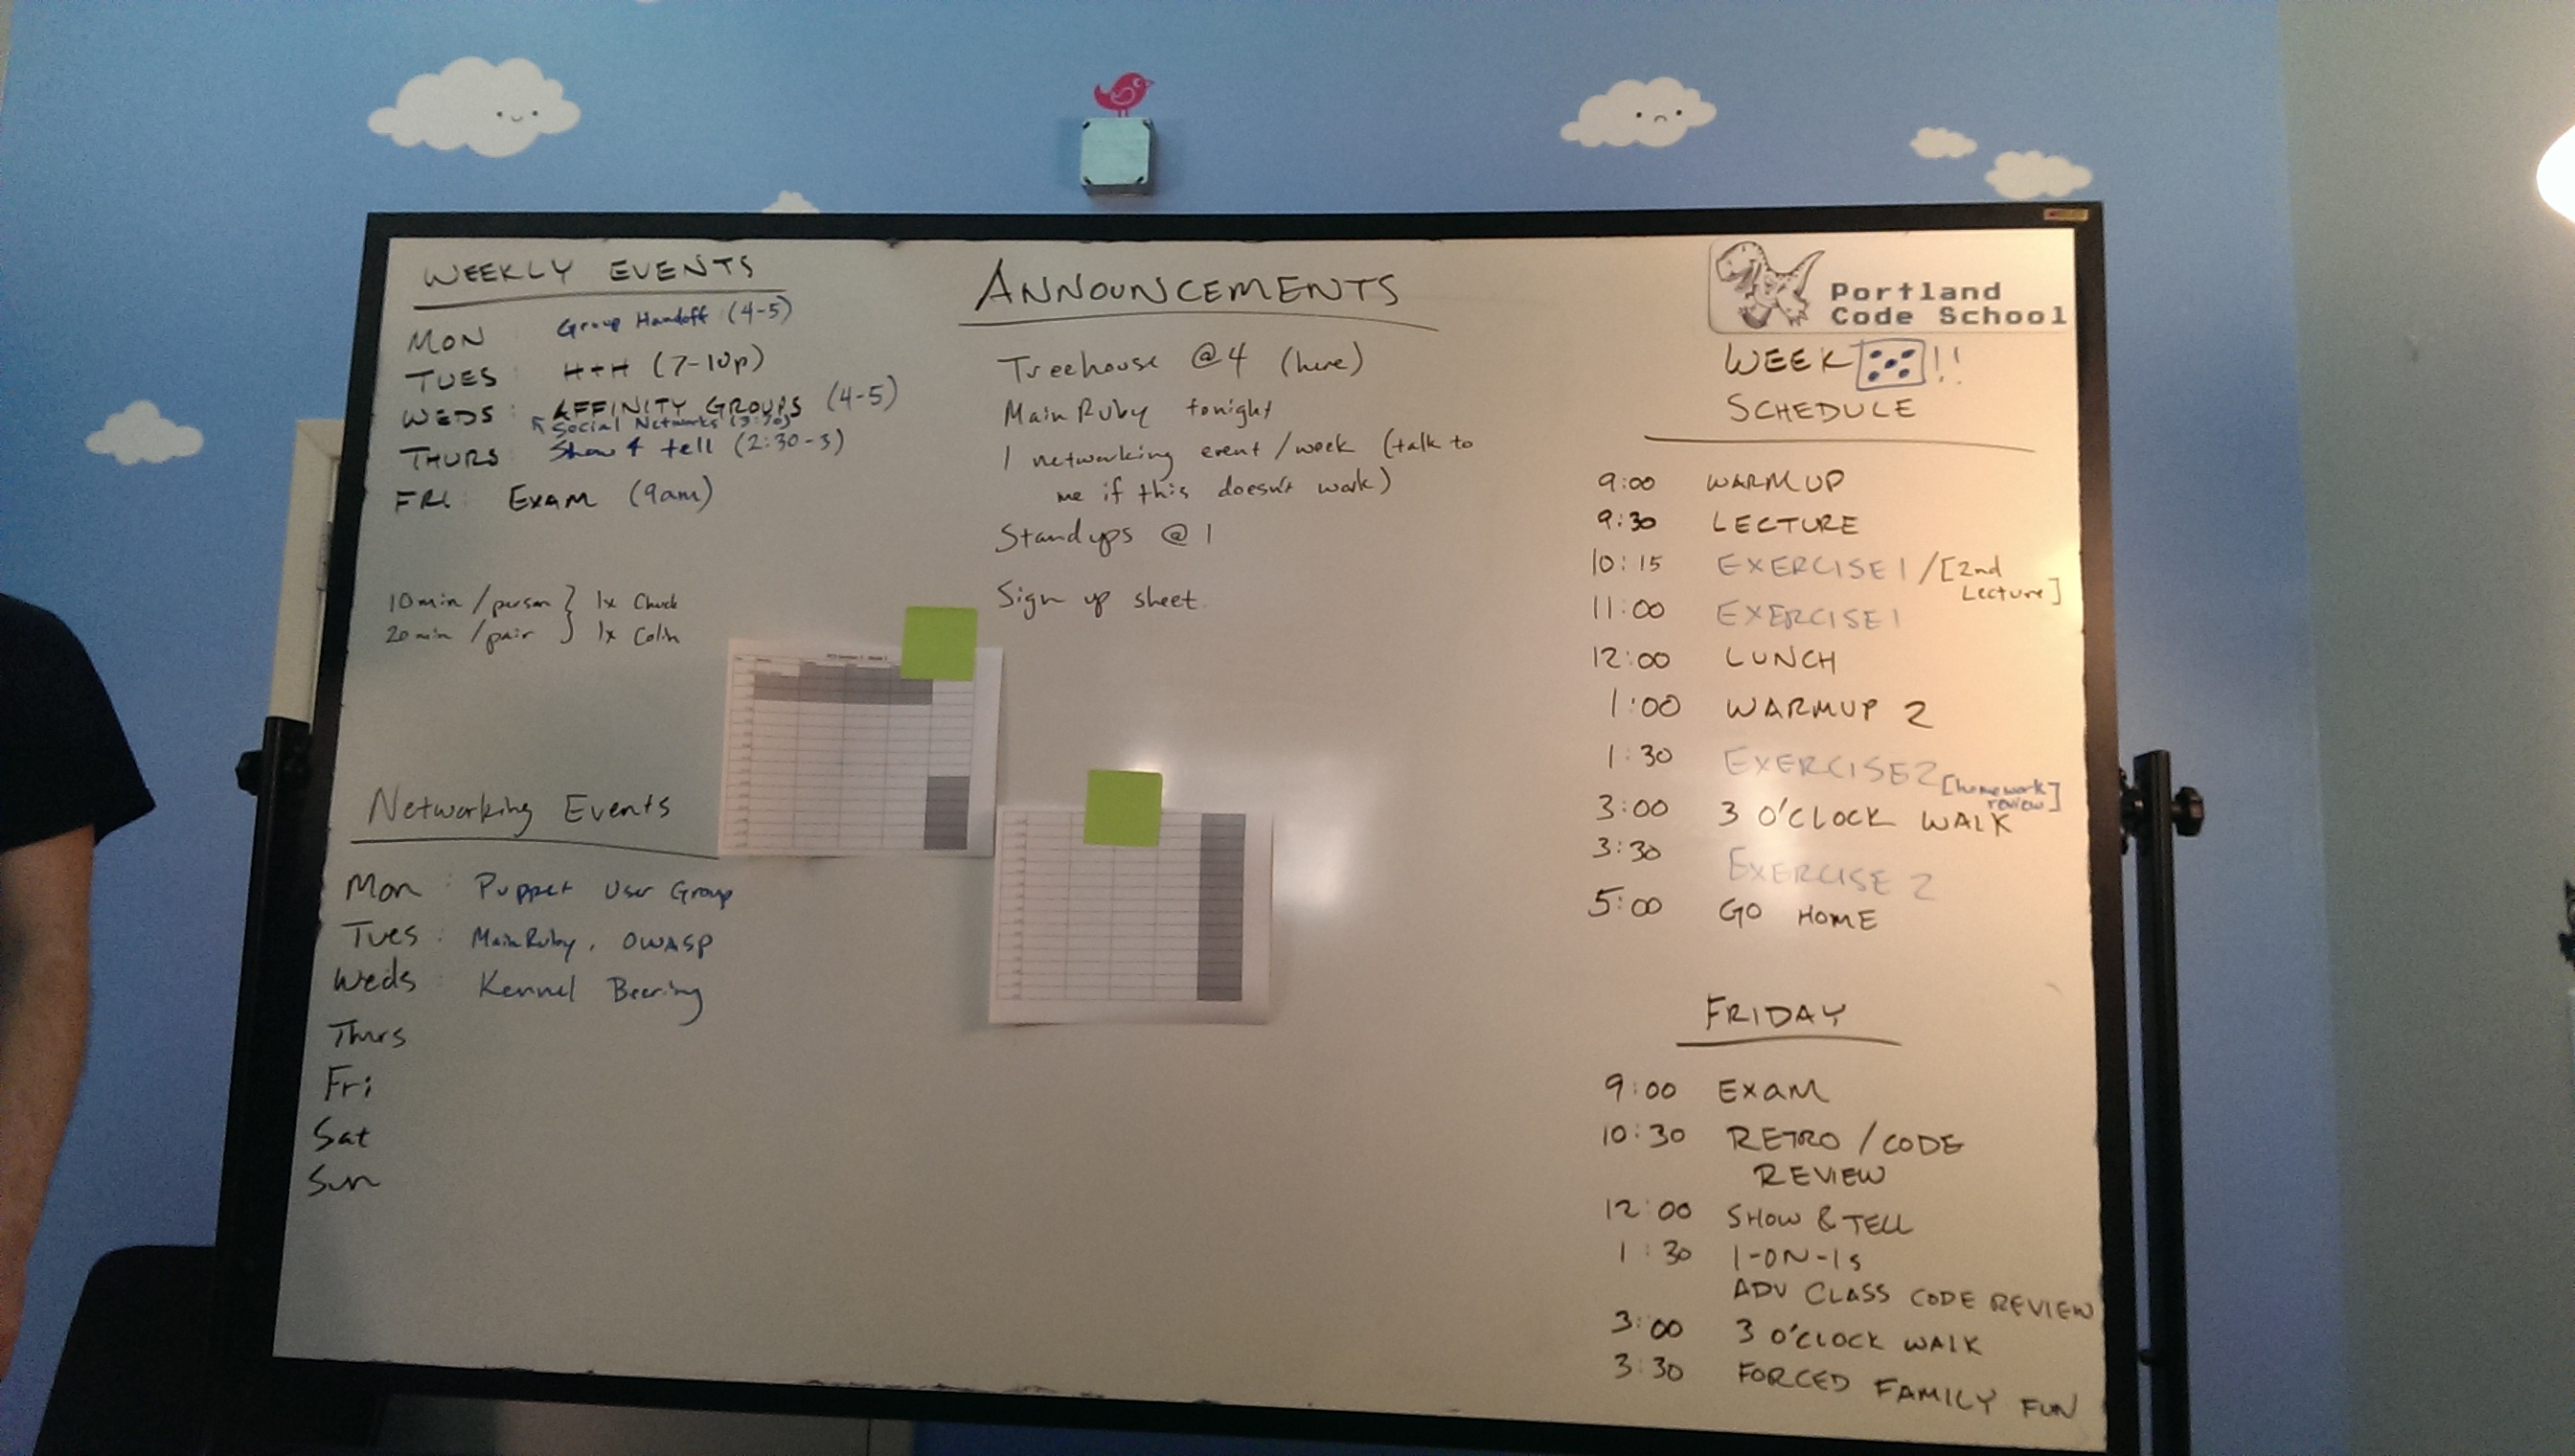 WEEKLY EVENTS
MON Group Handoff (4-5)
TUES : H+H (7-10p)
WEDS : AFFINITY GROUPS (4-5)
Social Networks (3:30)
THURS Show & tell (2:30-3)
FRI: EXAM (9am)
10min/person } 1x Chuck
20min/pair } 1x Colin
Networking Events
Mon : Puppet User Group
Tues : MainRuby, OWASP
Weds : Kennel Beering
Thurs
Fri
Sat
Sun
ANNOUNCEMENTS
Treehouse @4 (here)
MainRuby tonight
1 networking event/week (talk to
me if this doesn't work)
Standups @ 1
Sign up sheet
Portland
Code School
WEEK !!
SCHEDULE
9:00 WARMUP
9:30 LECTURE
10:15 EXERCISE 1 / [2nd
Lecture]
11:00 EXERCISE 1
12:00 LUNCH
1:00 WARMUP 2
1:30 EXERCISE 2 [homework
review]
3:00 3 O'CLOCK WALK
3:30 EXERCISE 2
5:00 GO HOME
FRIDAY
9:00 EXAM
10:30 RETRO/CODE
REVIEW
12:00 SHOW & TELL
1:30 1-ON-1s
ADV CLASS CODE REVIEW
3:00 3 O'CLOCK WALK
3:30 FORCED FAMILY FUN